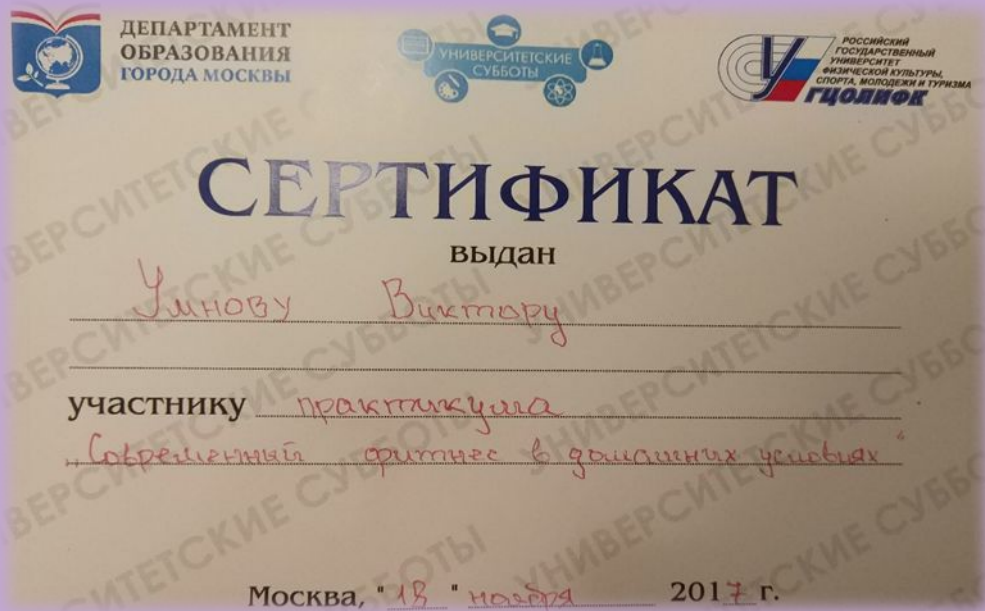 ДЕПАРТАМЕНТ
ОБРАЗОВАНИЯ
ГОРОДА МОСКВЫ
УНИВЕРСИТЕТСКИЕ
СУББОТЫ
РОССИЙСКИЙ
ГОСУДАРСТВЕННЫЙ
УНИВЕРСИТЕТ
ФИЗИЧЕСКОЙ КУЛЬТУРЫ,
СПОРТА, МОЛОДЕЖИ И ТУРИЗМА
ГЦОЛИФК
СЕРТИФИКАТ
выдан
Умнову Виктору
участнику практикума
„Современный фитнес в домашних условиях“
Москва, "18" ноября 2017 г.